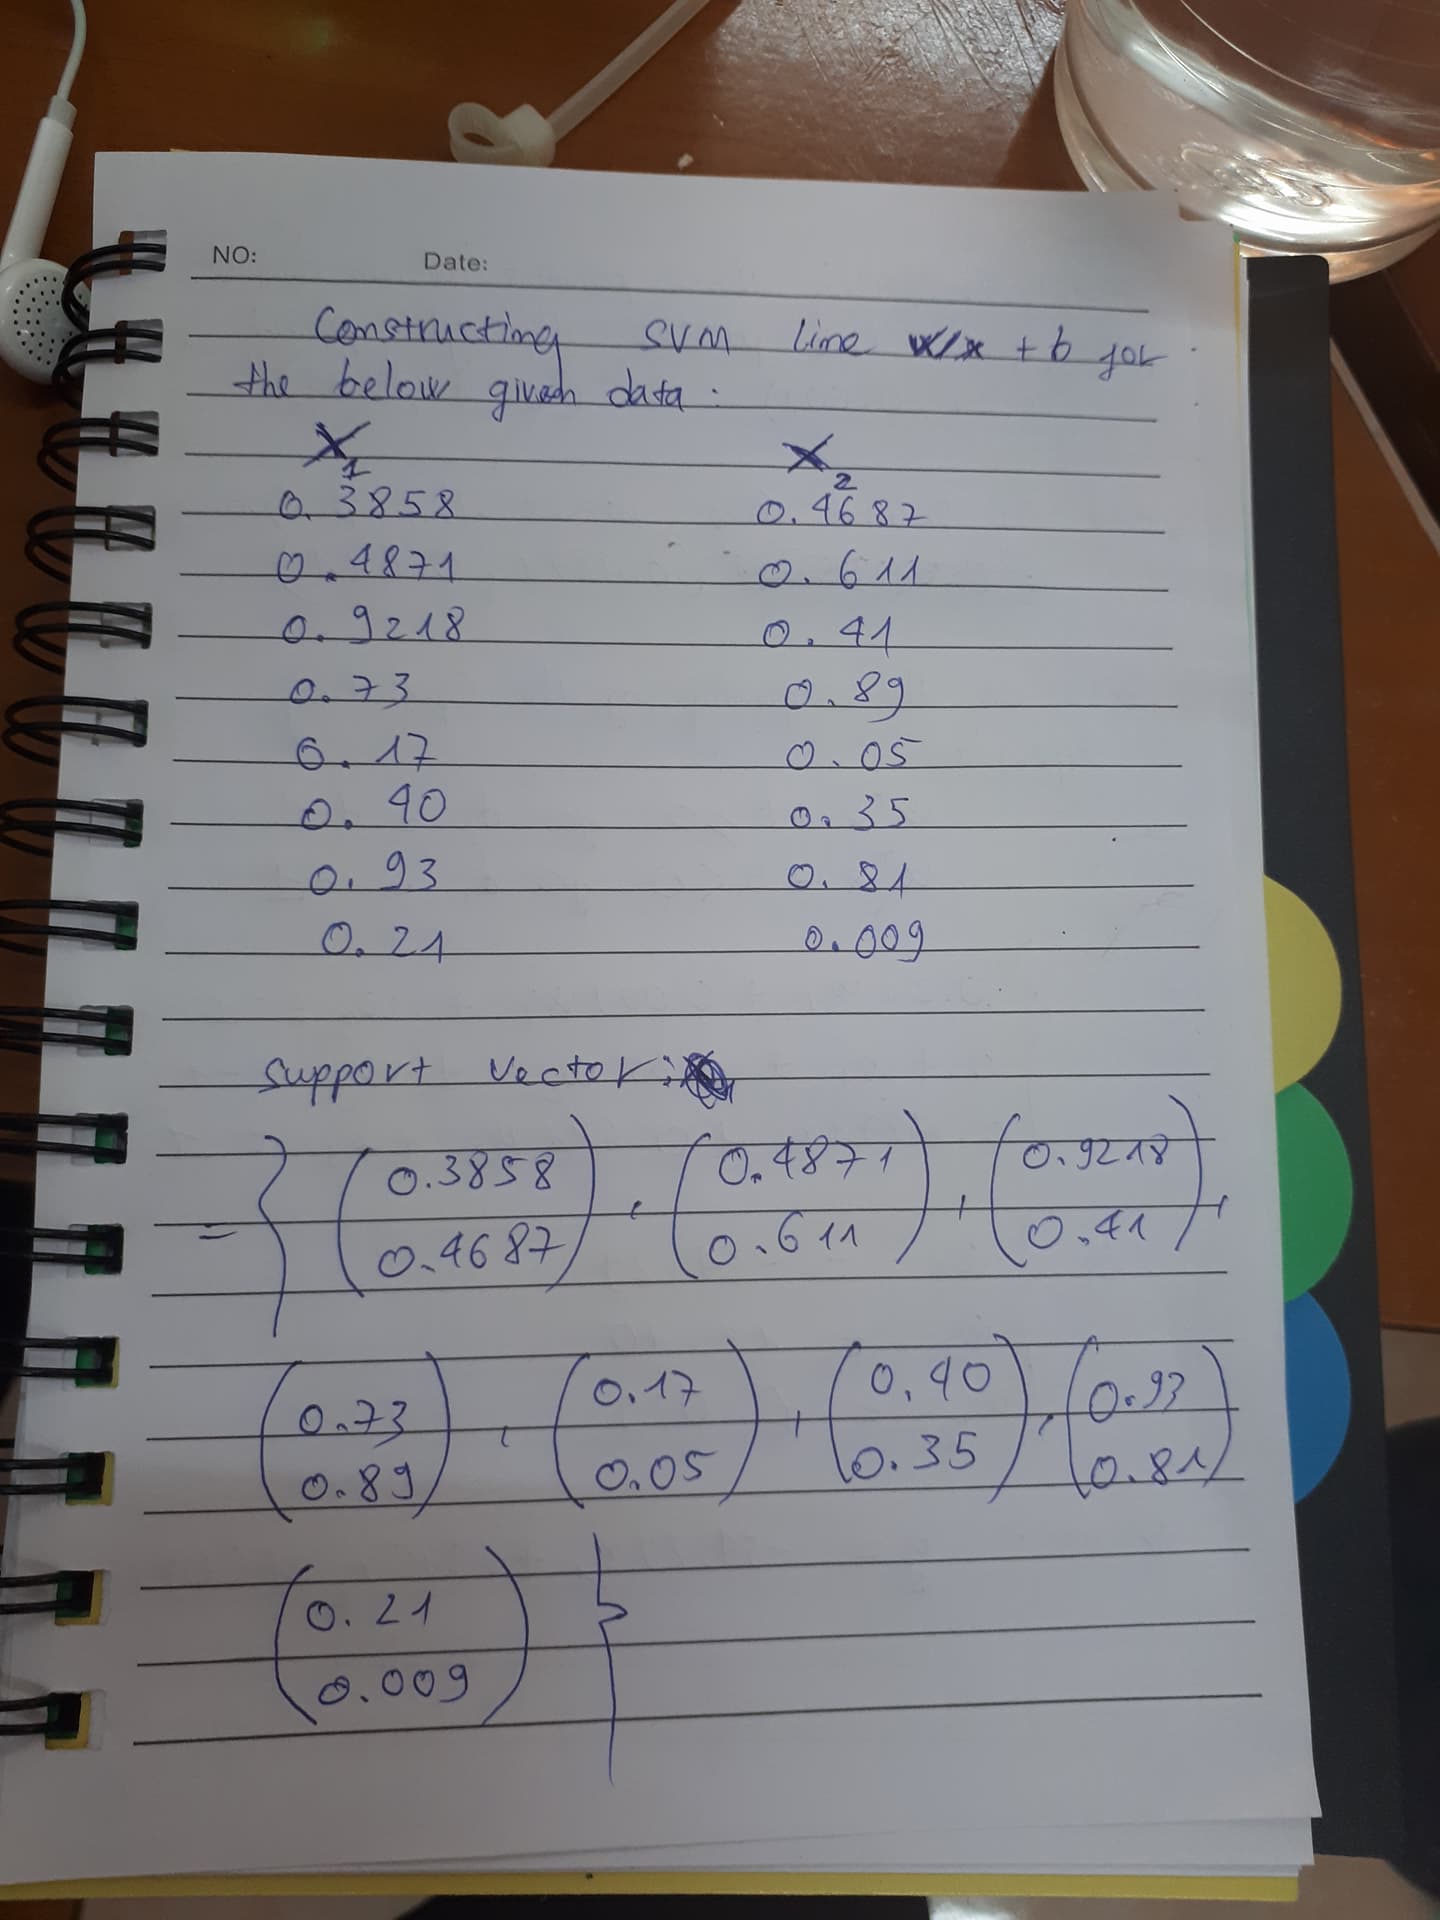 NO: Date:
Constructing SVM line wx + b for
the below given data.
X1 X2
0.3858 0.4687
0.4871 0.611
0.9218 0.41
0.73 0.89
0.17 0.05
0.40 0.35
0.93 0.81
0.21 0.009
support vector:
= { (0.3858 , (0.4871 , (0.9218 ,
0.4687) 0.611) 0.41)
(0.73 , (0.17 , (0.40 , (0.93
0.89) 0.05) 0.35) 0.81)
(0.21 }
0.009)